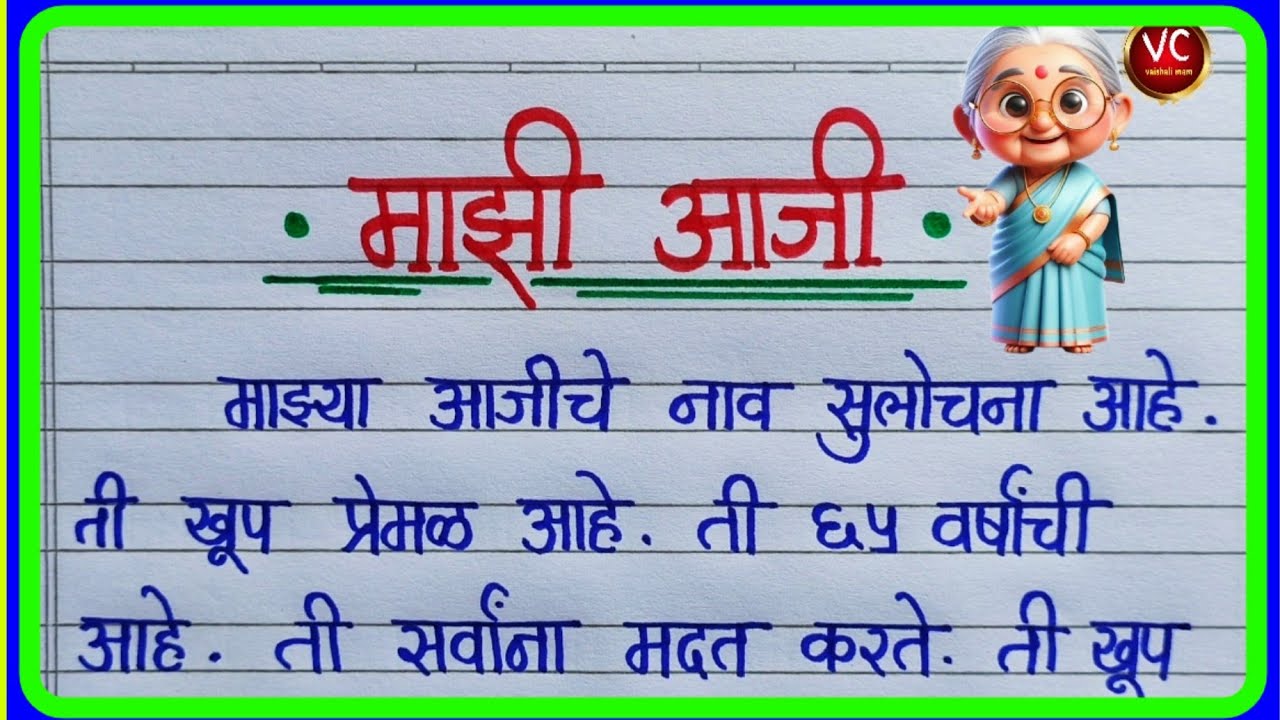 VC
vaishali mam
माझी आजी
माझ्या आजीचे नाव सुलोचना आहे.
ती खूप प्रेमळ आहे. ती ६५ वर्षांची
आहे. ती सर्वांना मदत करते. ती खूप